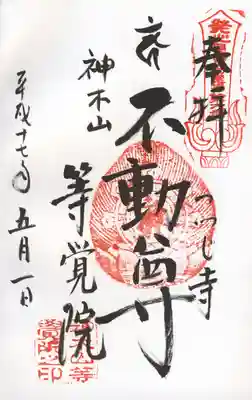 奉拝
つつじ寺
不動尊
神木山
等覚院
平成十七年五月一日